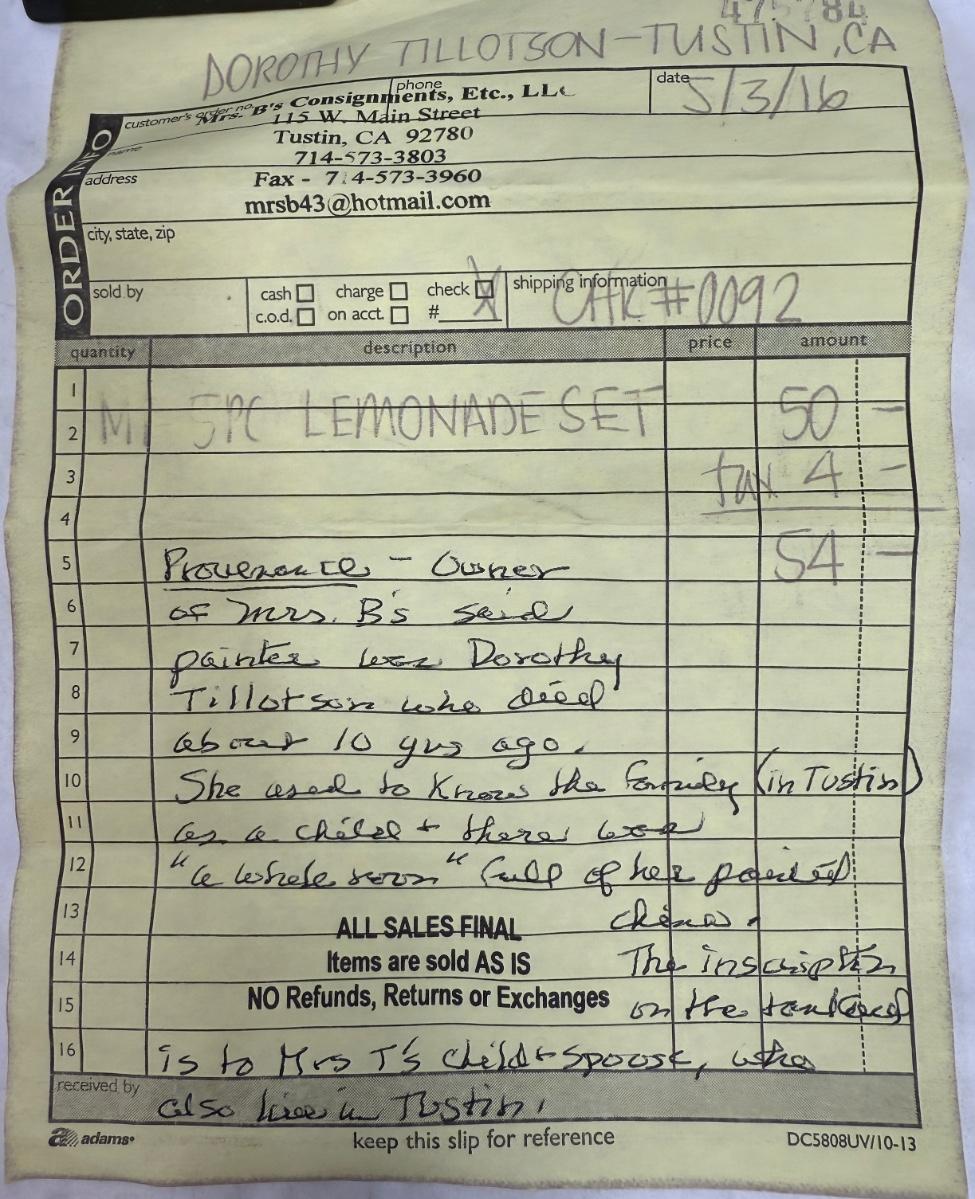 475784
DOROTHY TILLOTSON-TUSTIN, CA
customer's order no.
phone
date 5/3/16
Mrs. B's Consignments, Etc., LLC
115 W. Main Street
name
Tustin, CA 92780
714-573-3803
address
Fax - 714-573-3960
mrsb43@hotmail.com
ORDER INFO
city, state, zip
sold by
cash charge check X
shipping information
c.o.d. on acct. #
CHK #0092
quantity description price amount
1
2 5PC LEMONADE SET 50 -
3 tax 4 -
4
5 Provenance - Owner 54 -
6 of Mrs. B's said
7 painter was Dorothy
8 Tillotson who died
9 about 10 yrs ago.
10 She used to know the family (in Tustin)
11 as a child + there was
12 "a whole room" full of her painted
13 china.
ALL SALES FINAL
14 Items are sold AS IS The inscription
15 NO Refunds, Returns or Exchanges on the tankard
16 is to Mrs T's child + spouse, who
received by
also live in Tustin.
adams
keep this slip for reference
DC5808UV/10-13